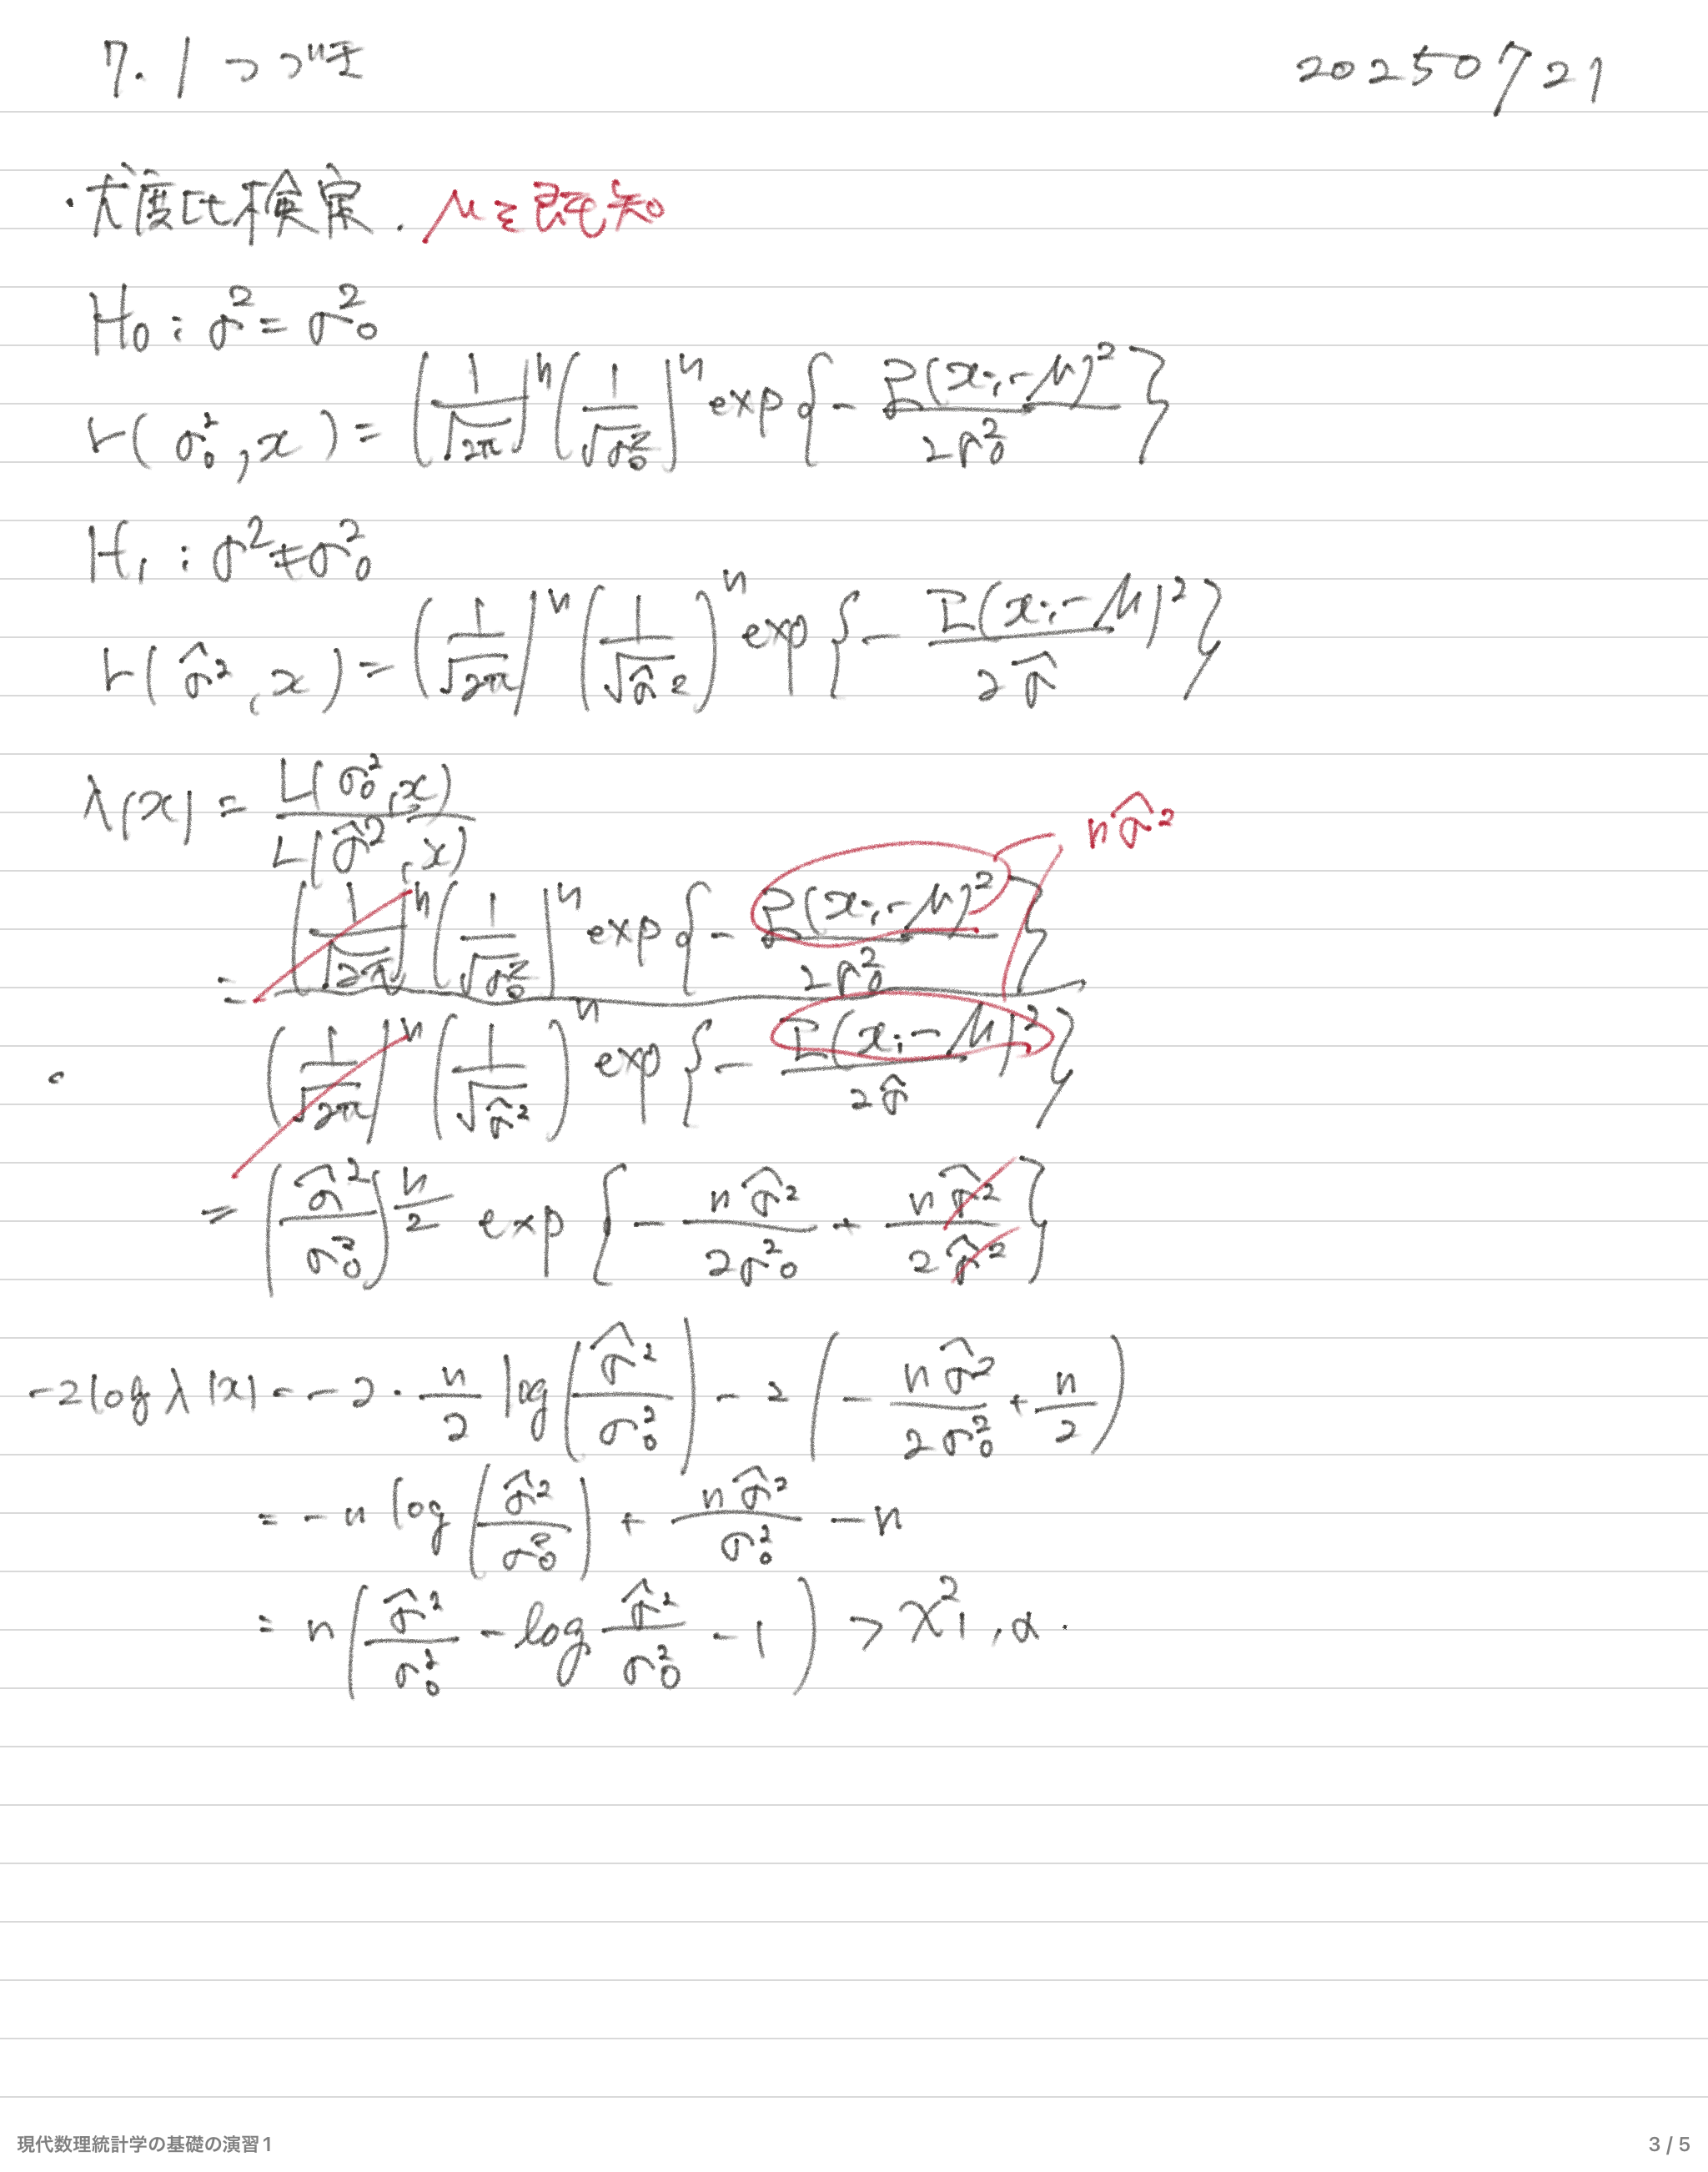 7.1 つづき
20250721
・尤度比検定. μを既知
H₀ : σ² = σ₀²
L(σ₀², x) = (1/√2π)ⁿ (1/√σ₀²)ⁿ exp{- Σ(xᵢ-μ)² / 2σ₀²}
H₁ : σ² ≠ σ₀²
L(σ̂², x) = (1/√2π)ⁿ (1/√σ̂²)ⁿ exp{- Σ(xᵢ-μ)² / 2σ̂}
λ(x) = L(σ₀², x) / L(σ̂², x)
nσ̂²
= (1/√2π)ⁿ (1/√σ₀²)ⁿ exp{- Σ(xᵢ-μ)² / 2σ₀²}
/ (1/√2π)ⁿ (1/√σ̂²)ⁿ exp{- Σ(xᵢ-μ)² / 2σ̂}
= (σ̂²/σ₀²)^(n/2) exp{- nσ̂²/2σ₀² + nσ̂²/2σ̂²}
-2 log λ(x) = -2・n/2 log(σ̂²/σ₀²) - 2(- nσ̂²/2σ₀² + n/2)
= -n log(σ̂²/σ₀²) + nσ̂²/σ₀² - n
= n(σ̂²/σ₀² - log σ̂²/σ₀² - 1) > χ²₁,α.
現代数理統計学の基礎の演習1
3 / 5